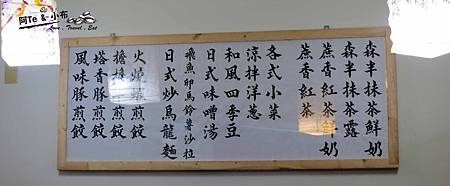 阿Te & 小布
Love . Travel . Eat
森半抹茶鮮奶
森半抹茶露
蔗香紅茶鮮奶
蔗香紅茶
各式小菜
涼拌洋蔥
和風四季豆
日式味噌湯
飛魚卵馬鈴薯沙拉
日式炒烏龍麵
火焰豚煎餃
擔擔豚煎餃
塔香豚煎餃
風味豚煎餃